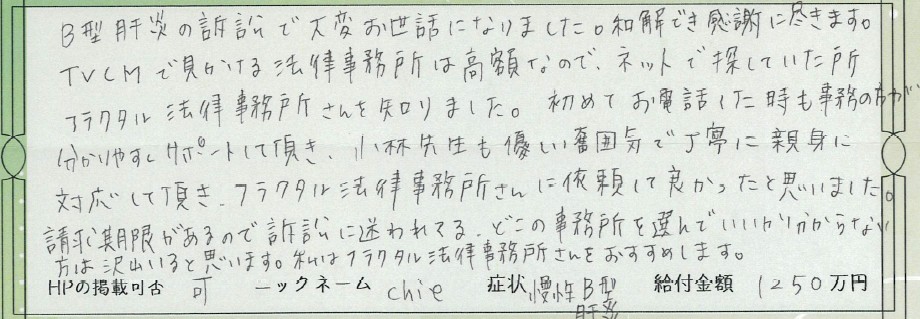 B型肝炎の訴訟で大変お世話になりました。和解でき感謝に尽きます。
TVCMで見かける法律事務所は高額なので、ネットで探していた所
フラクタル法律事務所さんを知りました。初めてお電話した時も事務の方が
分かりやすくサポートして頂き、小林先生も優しい雰囲気で丁寧に親身に
対応して頂き、フラクタル法律事務所さんに依頼して良かったと思いました。
請求期限があるので訴訟に迷われてる、どこの事務所を選んでいいか分からない
方は沢山いると思います。私はフラクタル法律事務所さんをおすすめします。
HPの掲載可否 可 ニックネーム chie 症状 慢性B型 給付金額 1250万円
肝炎